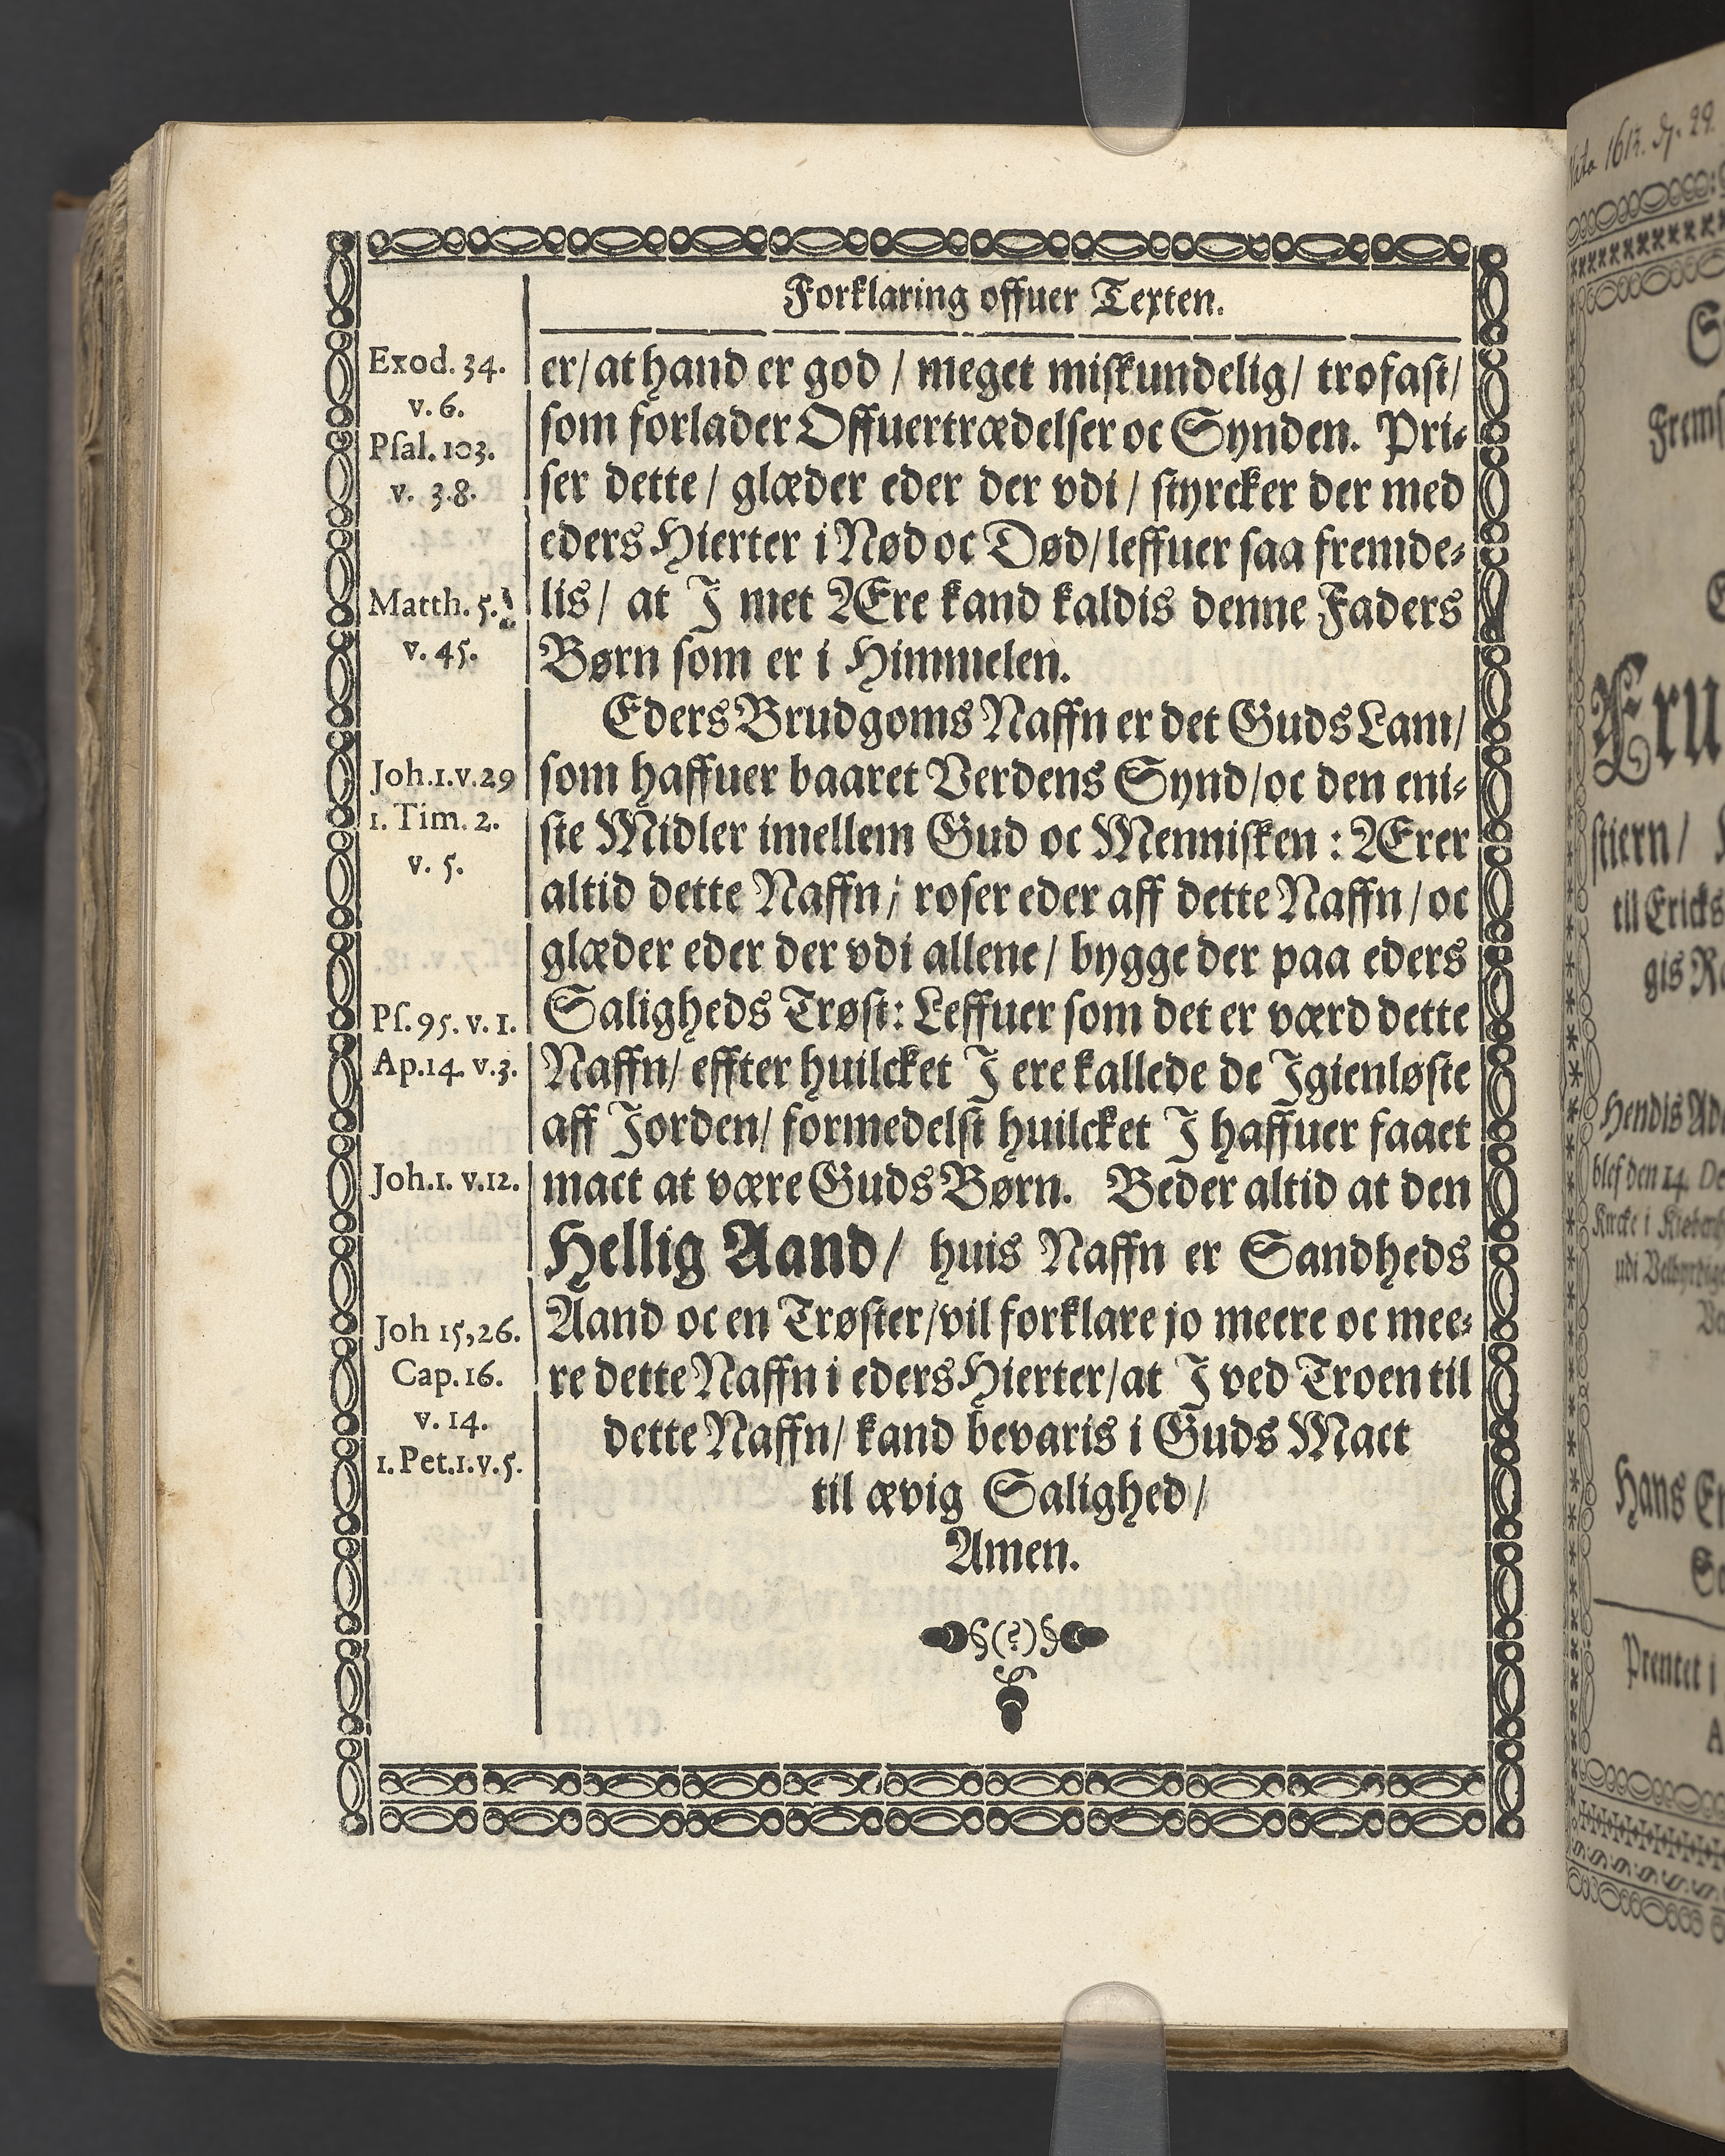 Forklaring offuer Texten.
Exod. 34.
v. 6.
Psal. 103.
v. 3.8.
Matth. 5.
v. 45.
Joh.1.v.29
1. Tim. 2.
v. 5.
Ps. 95. v. 1.
Ap.14. v.3.
Joh.1. v.12.
Joh 15,26.
Cap. 16.
v. 14.
1. Pet.1.v.5.
er/ at hand er god / meget miskundelig/ trofast/
som forlader Offuertrædelser oc Synden. Pri-
ser dette / glæder eder der vdi / styrcker der med
eders Hierter i Nød oc Død/ leffuer saa fremde-
lis/ at I met Ære kand kaldis denne Faders
Børn som er i Himmelen.
Eders Brudgoms Naffn er det Guds Lam/
som haffuer baaret Verdens Synd/ oc den eni-
ste Midler imellem Gud oc Mennisken : Ærer
altid dette Naffn/ roser eder aff dette Naffn / oc
glæder eder der vdi allene/ bygge der paa eders
Saligheds Trøst: Leffuer som det er værd dette
Naffn/ effter huilcket I ere kallede de Igienløste
aff Jorden/ formedelst huilcket I haffuer faaet
mact at være Guds Børn. Beder altid at den
Hellig Aand/ huis Naffn er Sandheds
Aand oc en Trøster/ vil forklare jo meere oc mee-
re dette Naffn i eders Hierter/ at I ved Troen til
dette Naffn/ kand bevaris i Guds Mact
til ævig Salighed/
Amen.
§(?)§
1612
29
Frems
Fru
stiern/
till Ericks
gis
Hendis
blef den 14. De
Kircke i
udi
Hans
Prentet i